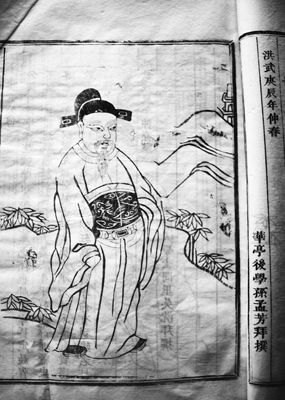 洪武庚辰年仲春
華亭後學孫孟芳拜撰